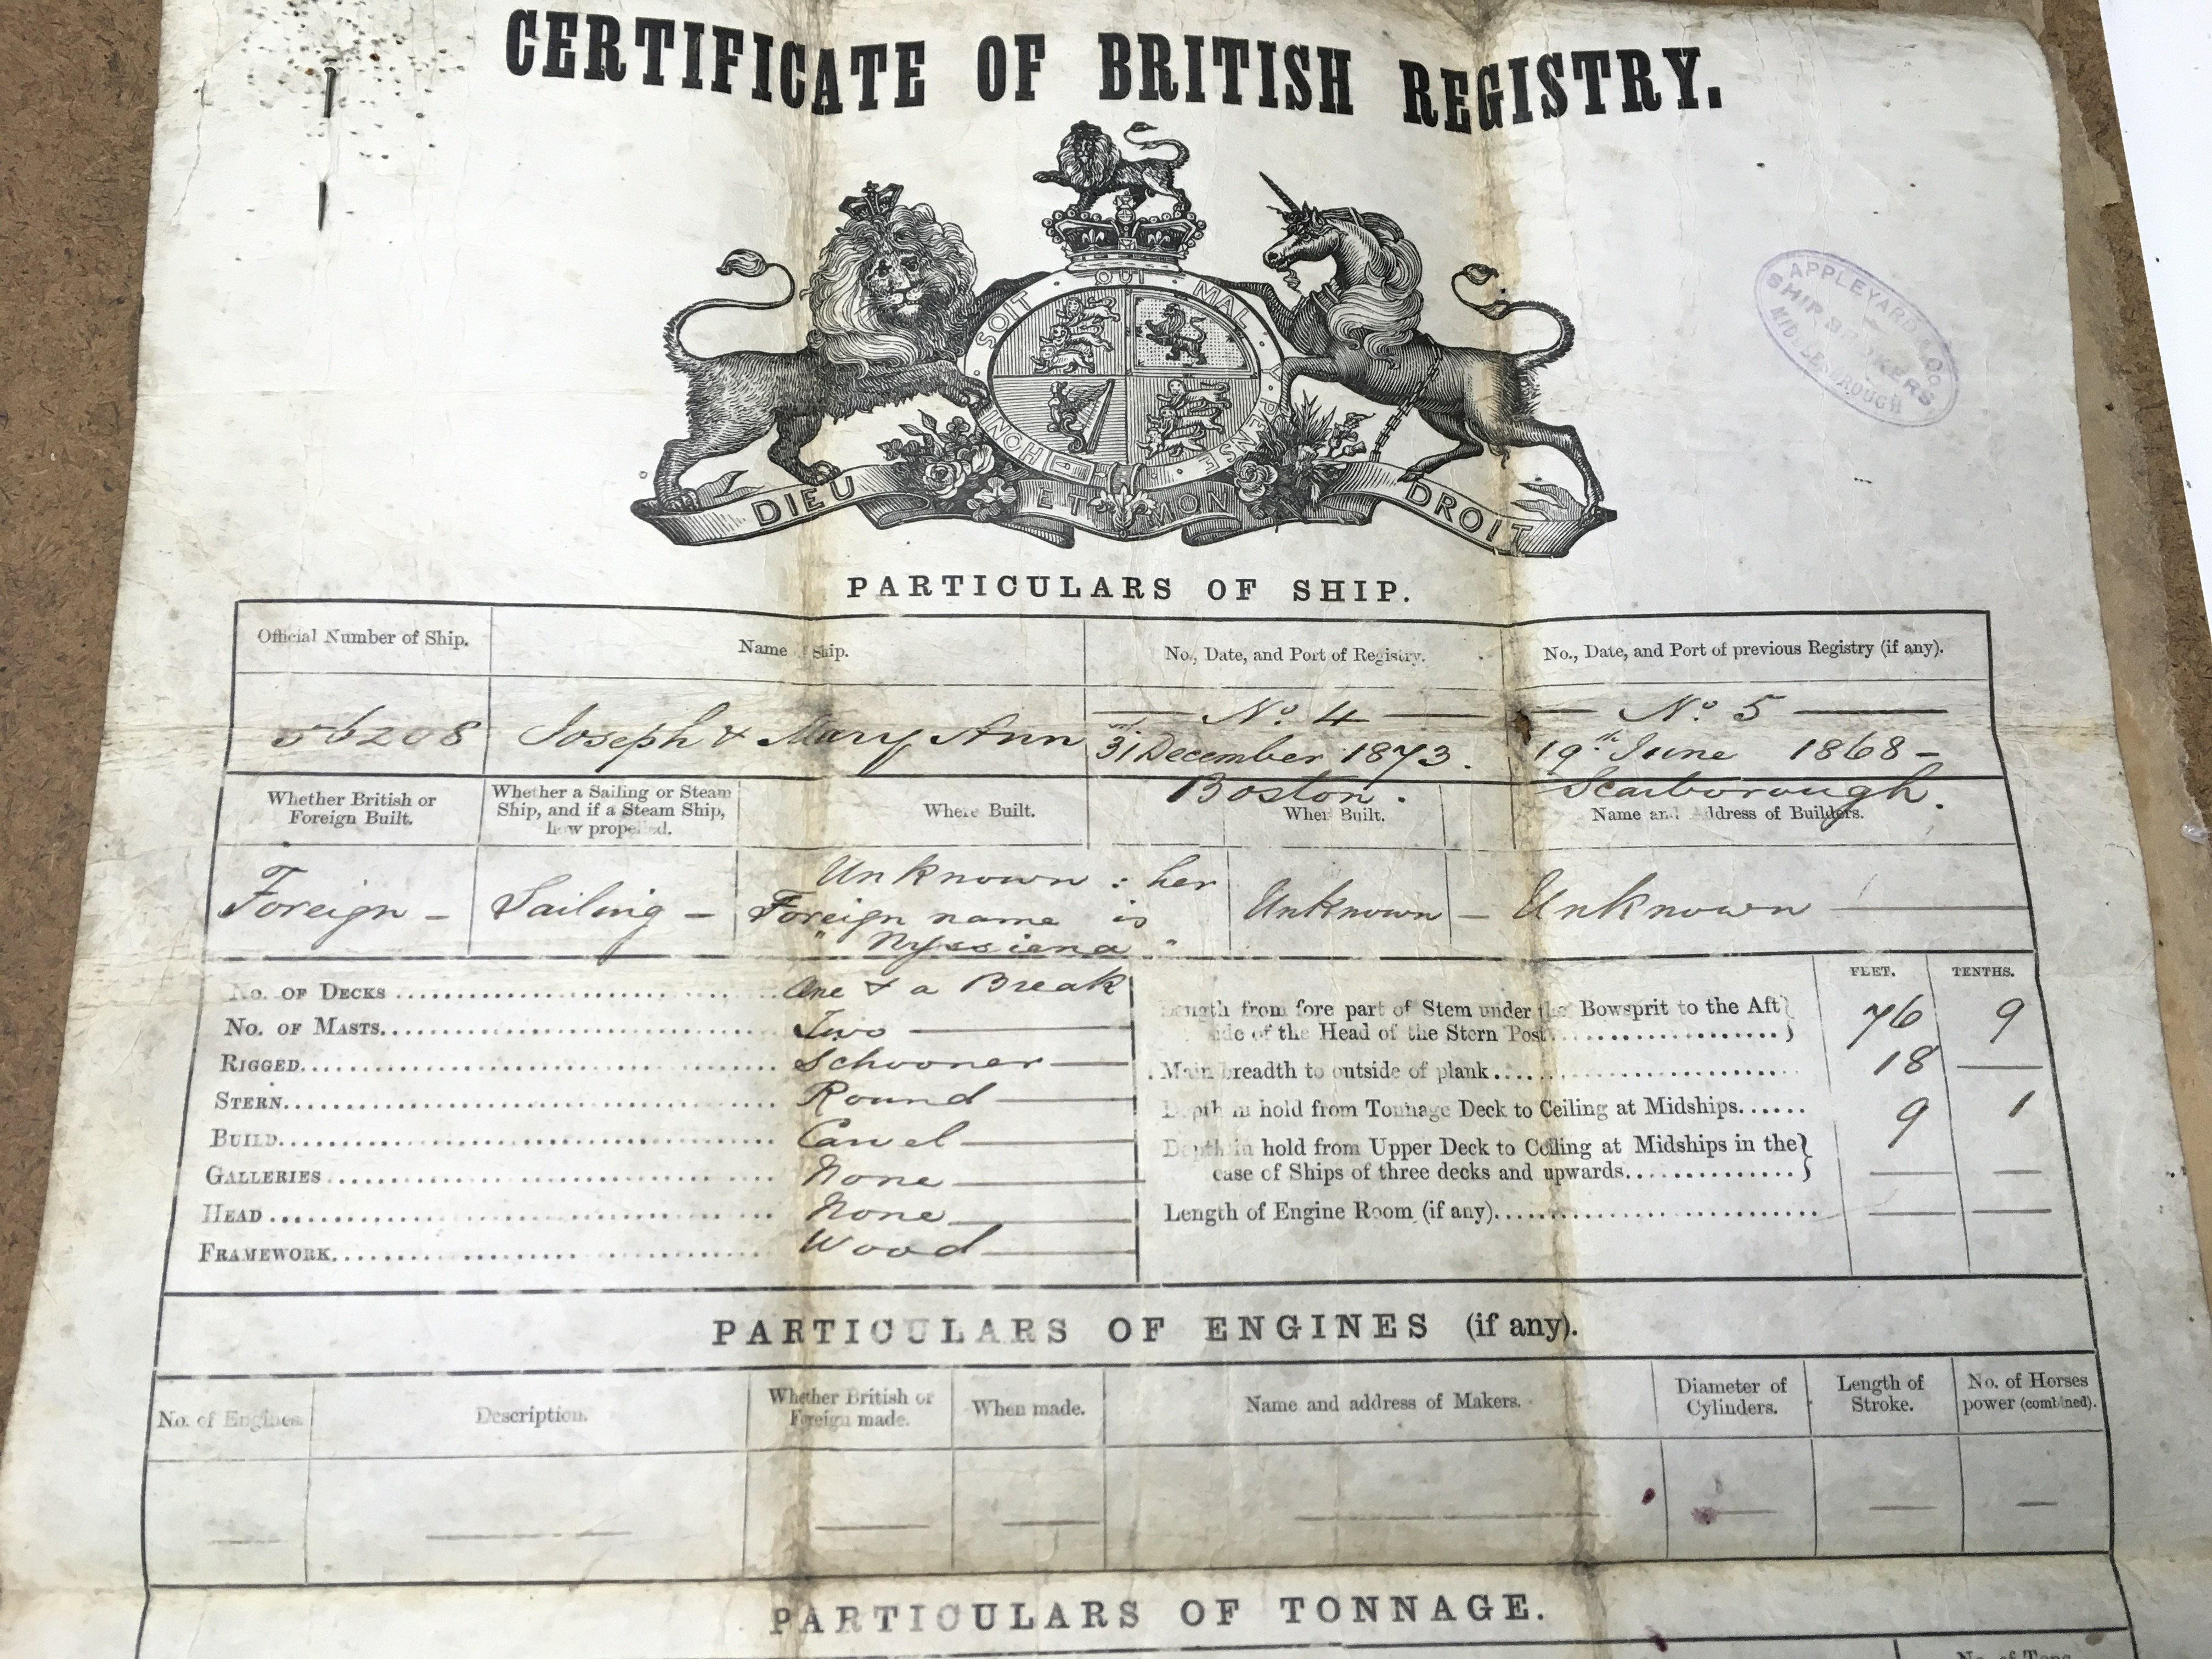 CERTIFICATE OF BRITISH REGISTRY.
SOIT QUI MAL Y PENSE
DIEU ET MON DROIT
APPLEYARD & Co.
SHIP BROKERS,
MIDDLESBROUGH
PARTICULARS OF SHIP.
Official Number of Ship. Name of Ship. No., Date, and Port of Registry. No., Date, and Port of previous Registry (if any).
No. 4 No. 5
56208 Joseph & Mary Ann 31st December 1873. 19th June 1868 -
Boston. Scarborough.
Whether British or Foreign Built. Whether a Sailing or Steam Ship, and if a Steam Ship, how propelled. Where Built. When Built. Name and Address of Builders.
Unknown : her
Foreign - Sailing - Foreign name is Unknown - Unknown
FEET. TENTHS.
No. of Decks One & a Break
No. of Masts Two
Rigged Schooner
Stern Round
Build Carvel
Galleries None
Head None
Framework Wood
Length from fore part of Stem under the Bowsprit to the Aft
side of the Head of the Stern Post 76 9
Main breadth to outside of plank 18 —
Depth in hold from Tonnage Deck to Ceiling at Midships 9 1
Depth in hold from Upper Deck to Ceiling at Midships in the
case of Ships of three decks and upwards — —
Length of Engine Room (if any) — —
PARTICULARS OF ENGINES (if any).
No. of Engines. Description. Whether British or Foreign made. When made. Name and address of Makers. Diameter of Cylinders. Length of Stroke. No. of Horses power (combined).
PARTICULARS OF TONNAGE.
No. of Tons